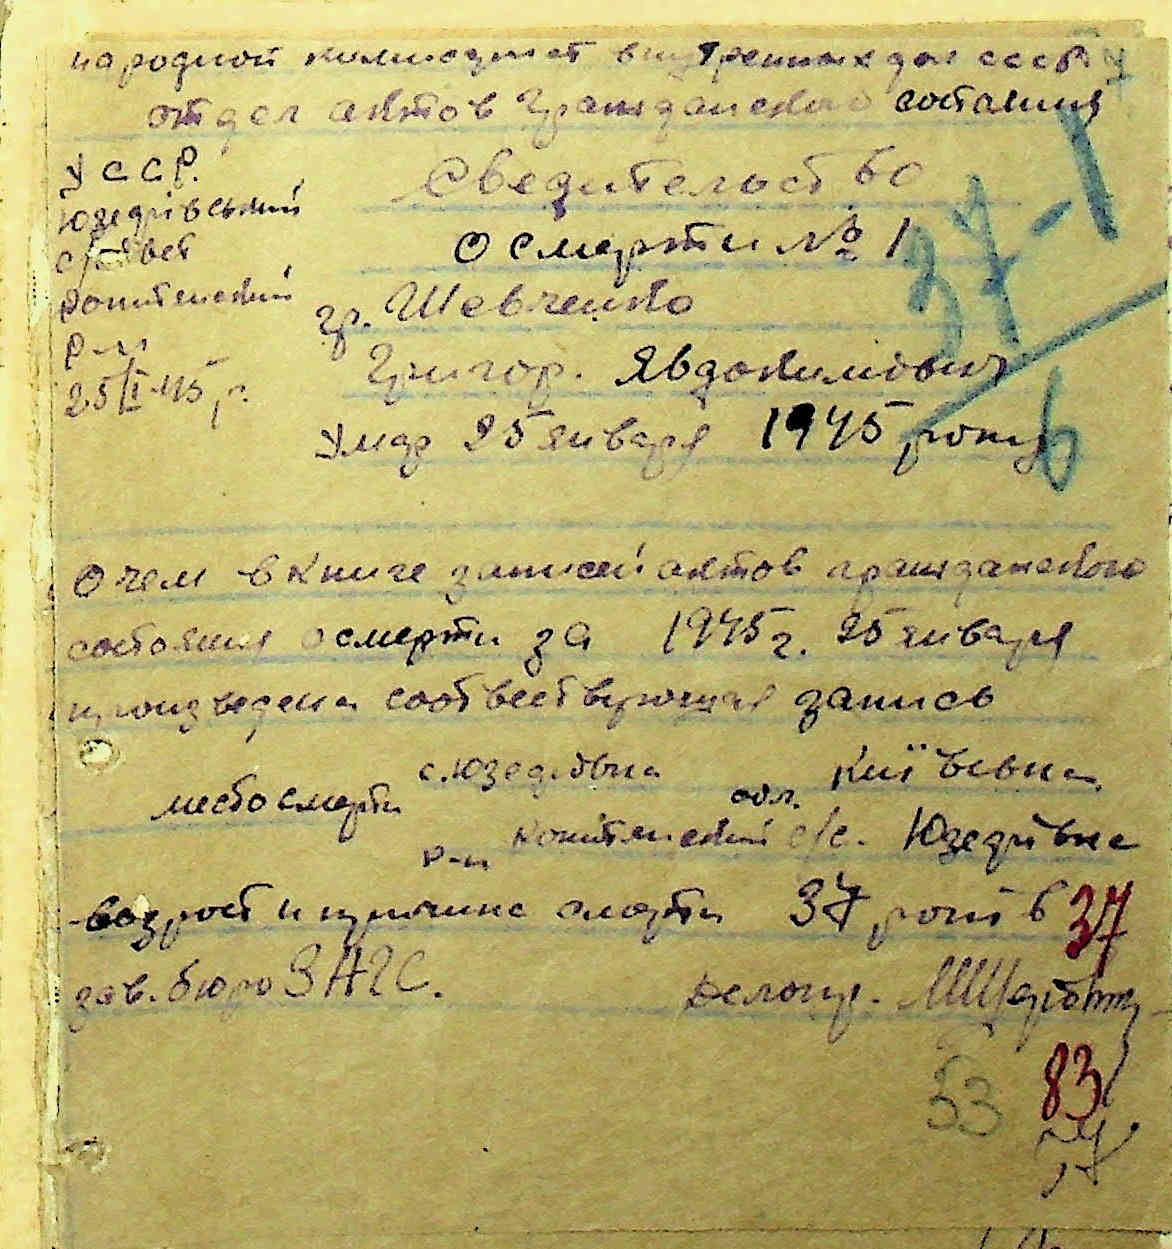 народной комиссариат внутренных дел СССР
отдел актов гражданского состояния
УССР.
Юзефівський
с/совет
Рокитянский
р-н
25/I-45 р.
Сведительство
О смерти № 1
гр. Шевченко
Григор. Явдокимович
Умер 25 января 1945 року
37-1
6
О чем в книге записей актов гражданского
состояния о смерти за 1945 г. 25 января
произведена соотвествующая запись
место смерти с. Юзефівка обл. Київська
р-н Рокитянский с/с. Юзефівка
возрост и причина смерти 37 років
37
зав. бюро ЗАГС. Делопр.
53 83